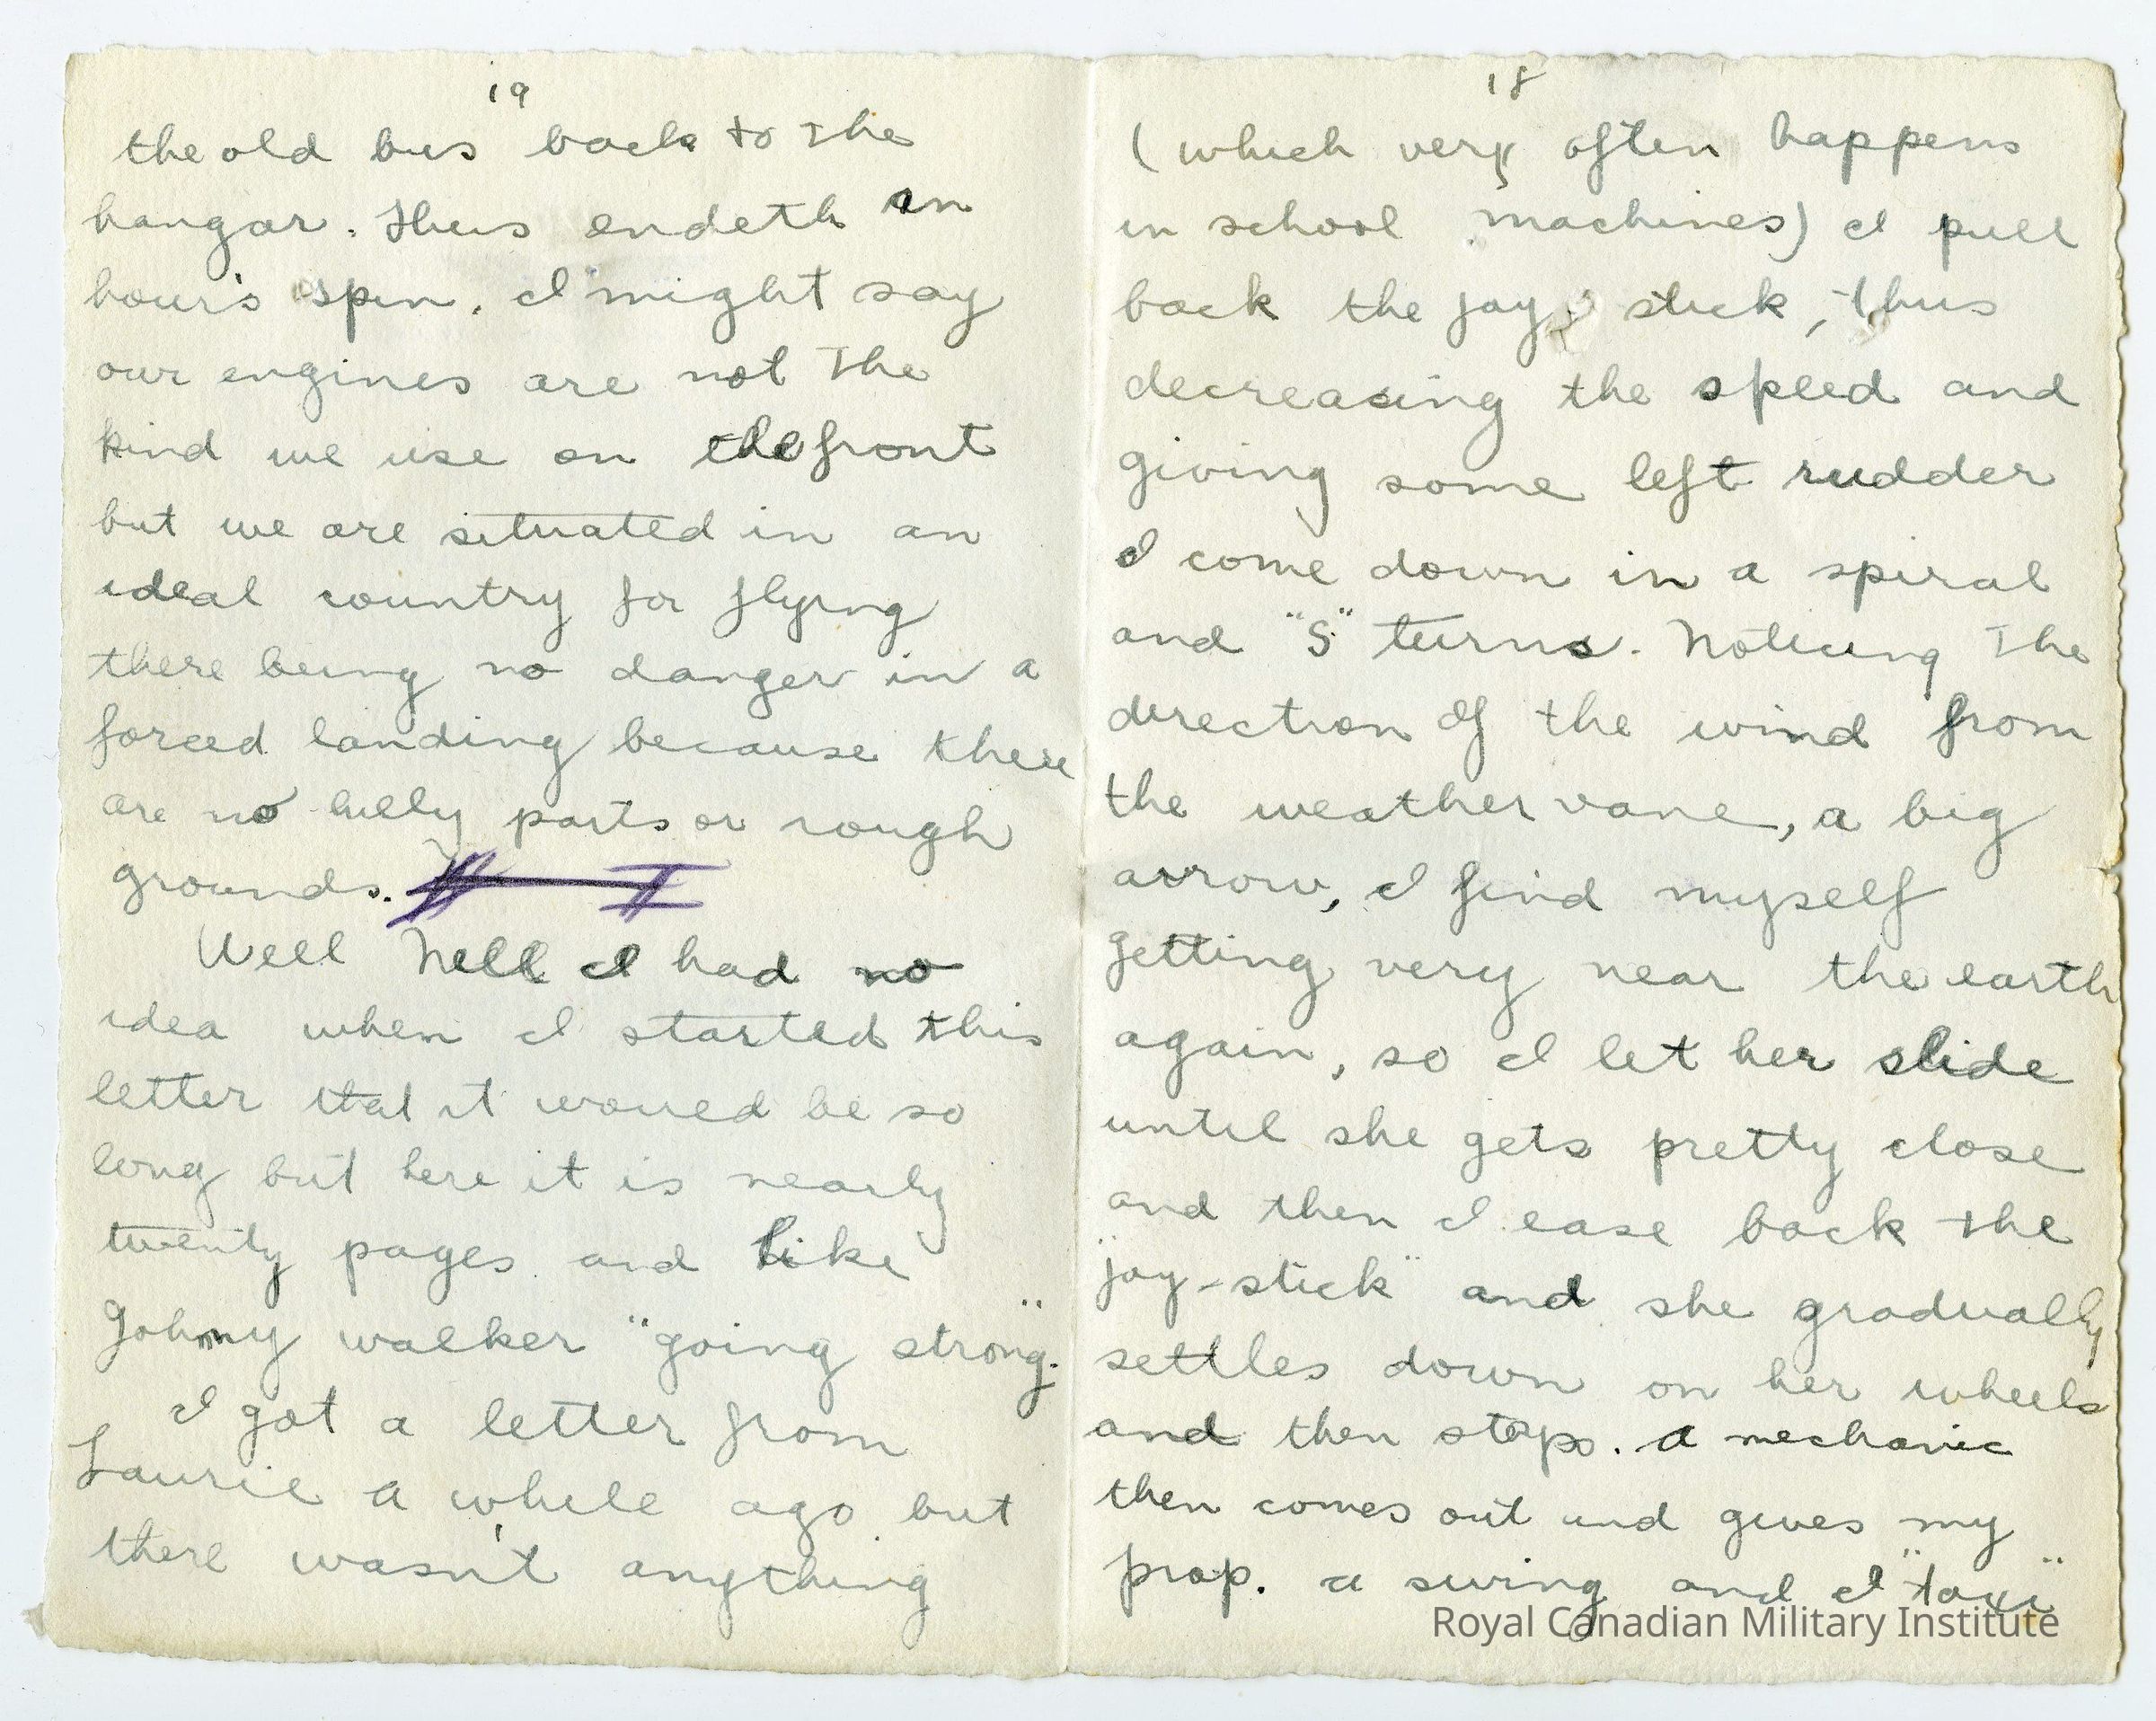 18
( which very often happens
in school machines) I pull
back the joy stick, thus
decreasing the speed and
giving some left rudder
I come down in a spiral
and "S" turns. Noticing the
direction of the wind from
the weather vane, a big
arrow, I find myself
getting very near the earth
again, so I let her slide
until she gets pretty close
and then I ease back the
"joy-stick" and she gradually
settles down on her wheels
and then stops. A mechanic
then comes out and gives my
prop. a swing and I "taxi"
19
the old bus back to the
hangar. Thus endeth an
hour's spin. I might say
our engines are not the
kind we use on the front
but we are situated in an
ideal country for flying
there being no danger in a
forced landing because there
are no hilly parts or rough
grounds.
Well Nell I had no
idea when I started this
letter that it would be so
long but here it is nearly
twenty pages and like
Johnny walker "going strong".
I got a letter from
Laurie a while ago but
there wasn't anything
Royal Canadian Military Institute